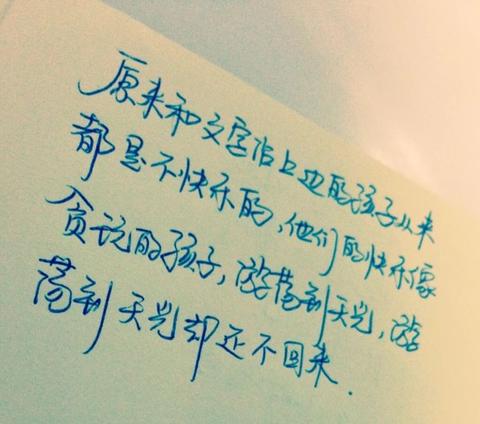 原来和文字沾上边的孩子从来
都是不快乐的，他们的快乐像
贪玩的孩子，游荡到天光，游
荡到天光却还不回来.